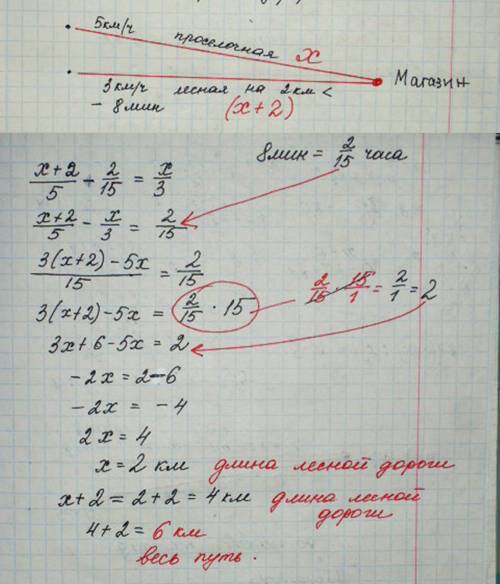 5км/ч проселочная x
3км/ч лесная на 2км < Магазин
- 8мин (x+2)
8мин = 2/15 часа
x+2/5 - 2/15 = x/3
x+2/5 - x/3 = 2/15
3(x+2)-5x/15 = 2/15
3(x+2)-5x = 2/15 · 15 2/15 · 15/1 = 2/1 = 2
3x+6-5x = 2
-2x = 2-6
-2x = -4
2x = 4
x = 2 км длина лесной дороги
x+2 = 2+2 = 4км длина лесной
дороги
4+2 = 6 км
весь путь.